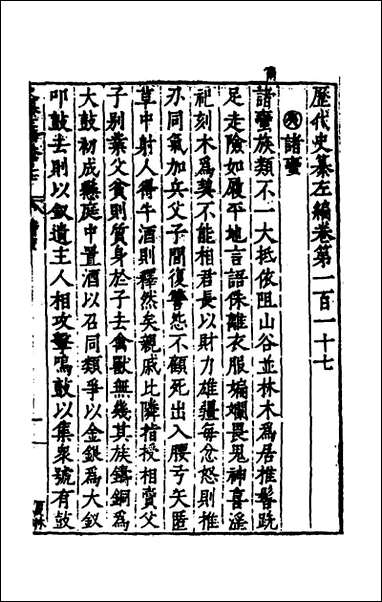 歷代史纂左編卷第一百一十七
夷諸蠻
諸蠻族類不一大抵依阻山谷並林木為居椎髻跣
足走險如履平地言語侏離衣服斒斕畏鬼神喜淫
祀刻木為契不能相君長以財力雄彊每忿怒則推
刃同氣加兵父子間復讐怨不顧死出入腰弓矢匿
草中射人得牛酒則釋然矣親戚比隣指授相賣父
子别業父貧則質身於子去禽獸無幾其族鑄銅為
大鼓初成懸庭中置酒以召同類爭以金銀為大釵
叩鼓去則以釵遺主人相攻擊鳴鼓以集衆號有鼓